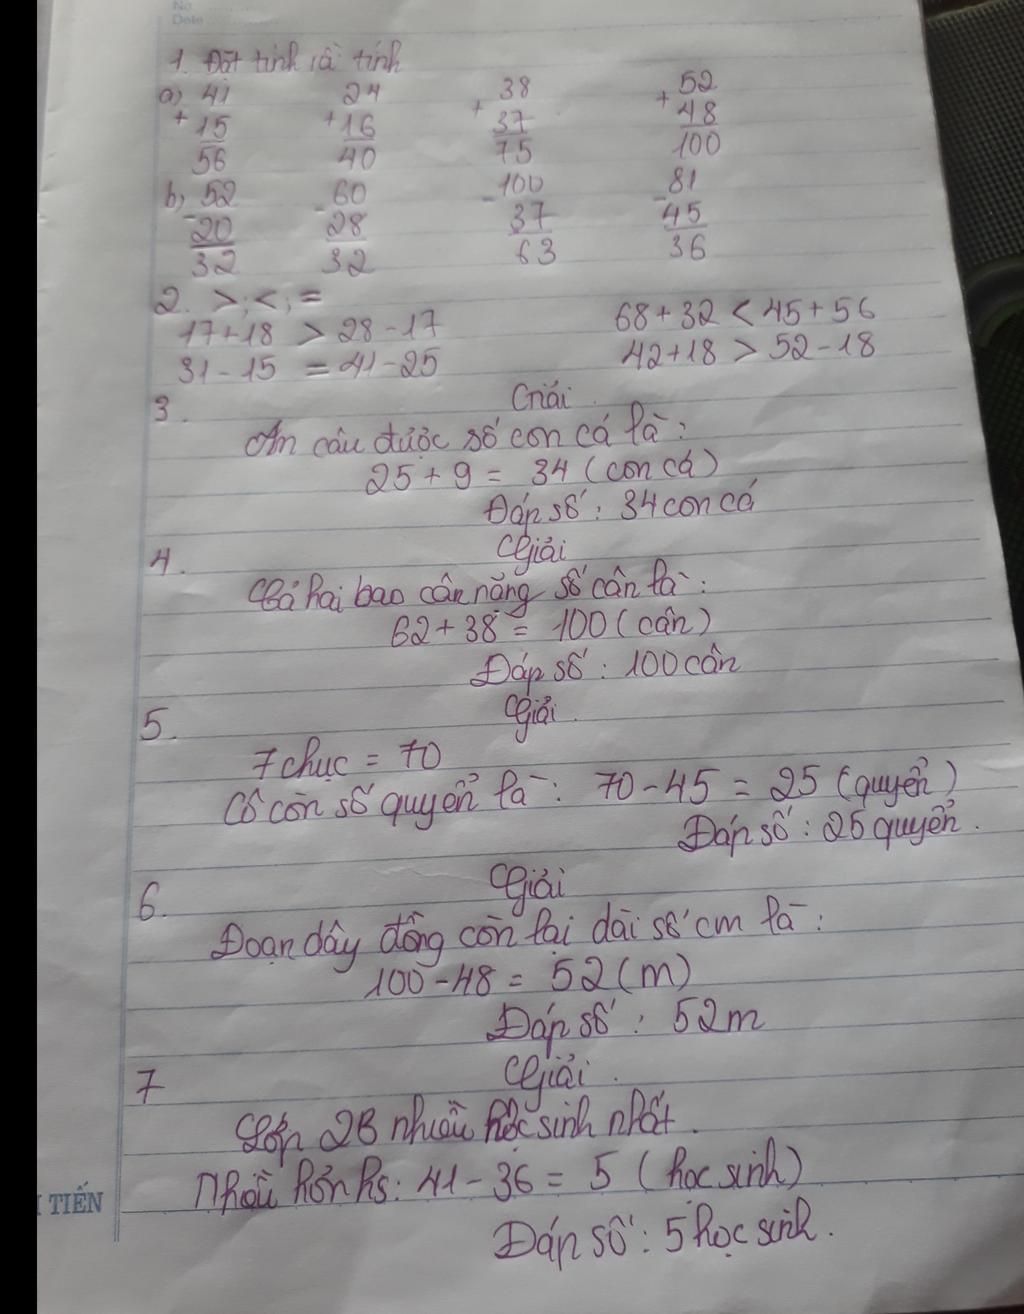 No
Date
1. Đặt tính rồi tính
a) 41 24 38 52
+ 15 + 16 + 37 + 48
56 40 75 100
b) 52 60 100 81
- 20 - 28 - 37 - 45
32 32 63 36
2. >; <; =
17+18 > 28-17 68+32 < 45+56
31-15 = 41-25 42+18 > 52-18
3. Giải
An câu được số con cá là:
25+9 = 34 (con cá)
Đáp số: 34 con cá
4. Giải
Cả hai bao cân nặng số cân là:
62+38 = 100 (cân)
Đáp số: 100 cân
5. Giải
7 chục = 70
Cô còn số quyển là: 70-45 = 25 (quyển)
Đáp số: 25 quyển.
6. Giải
Đoạn dây đồng còn lại dài số cm là:
100-48 = 52 (m)
Đáp số: 52m
7 Giải.
Lớp 2B nhiều học sinh nhất.
Nhiều hơn hs: 41-36 = 5 (học sinh)
TIẾN
Đáp số: 5 học sinh.